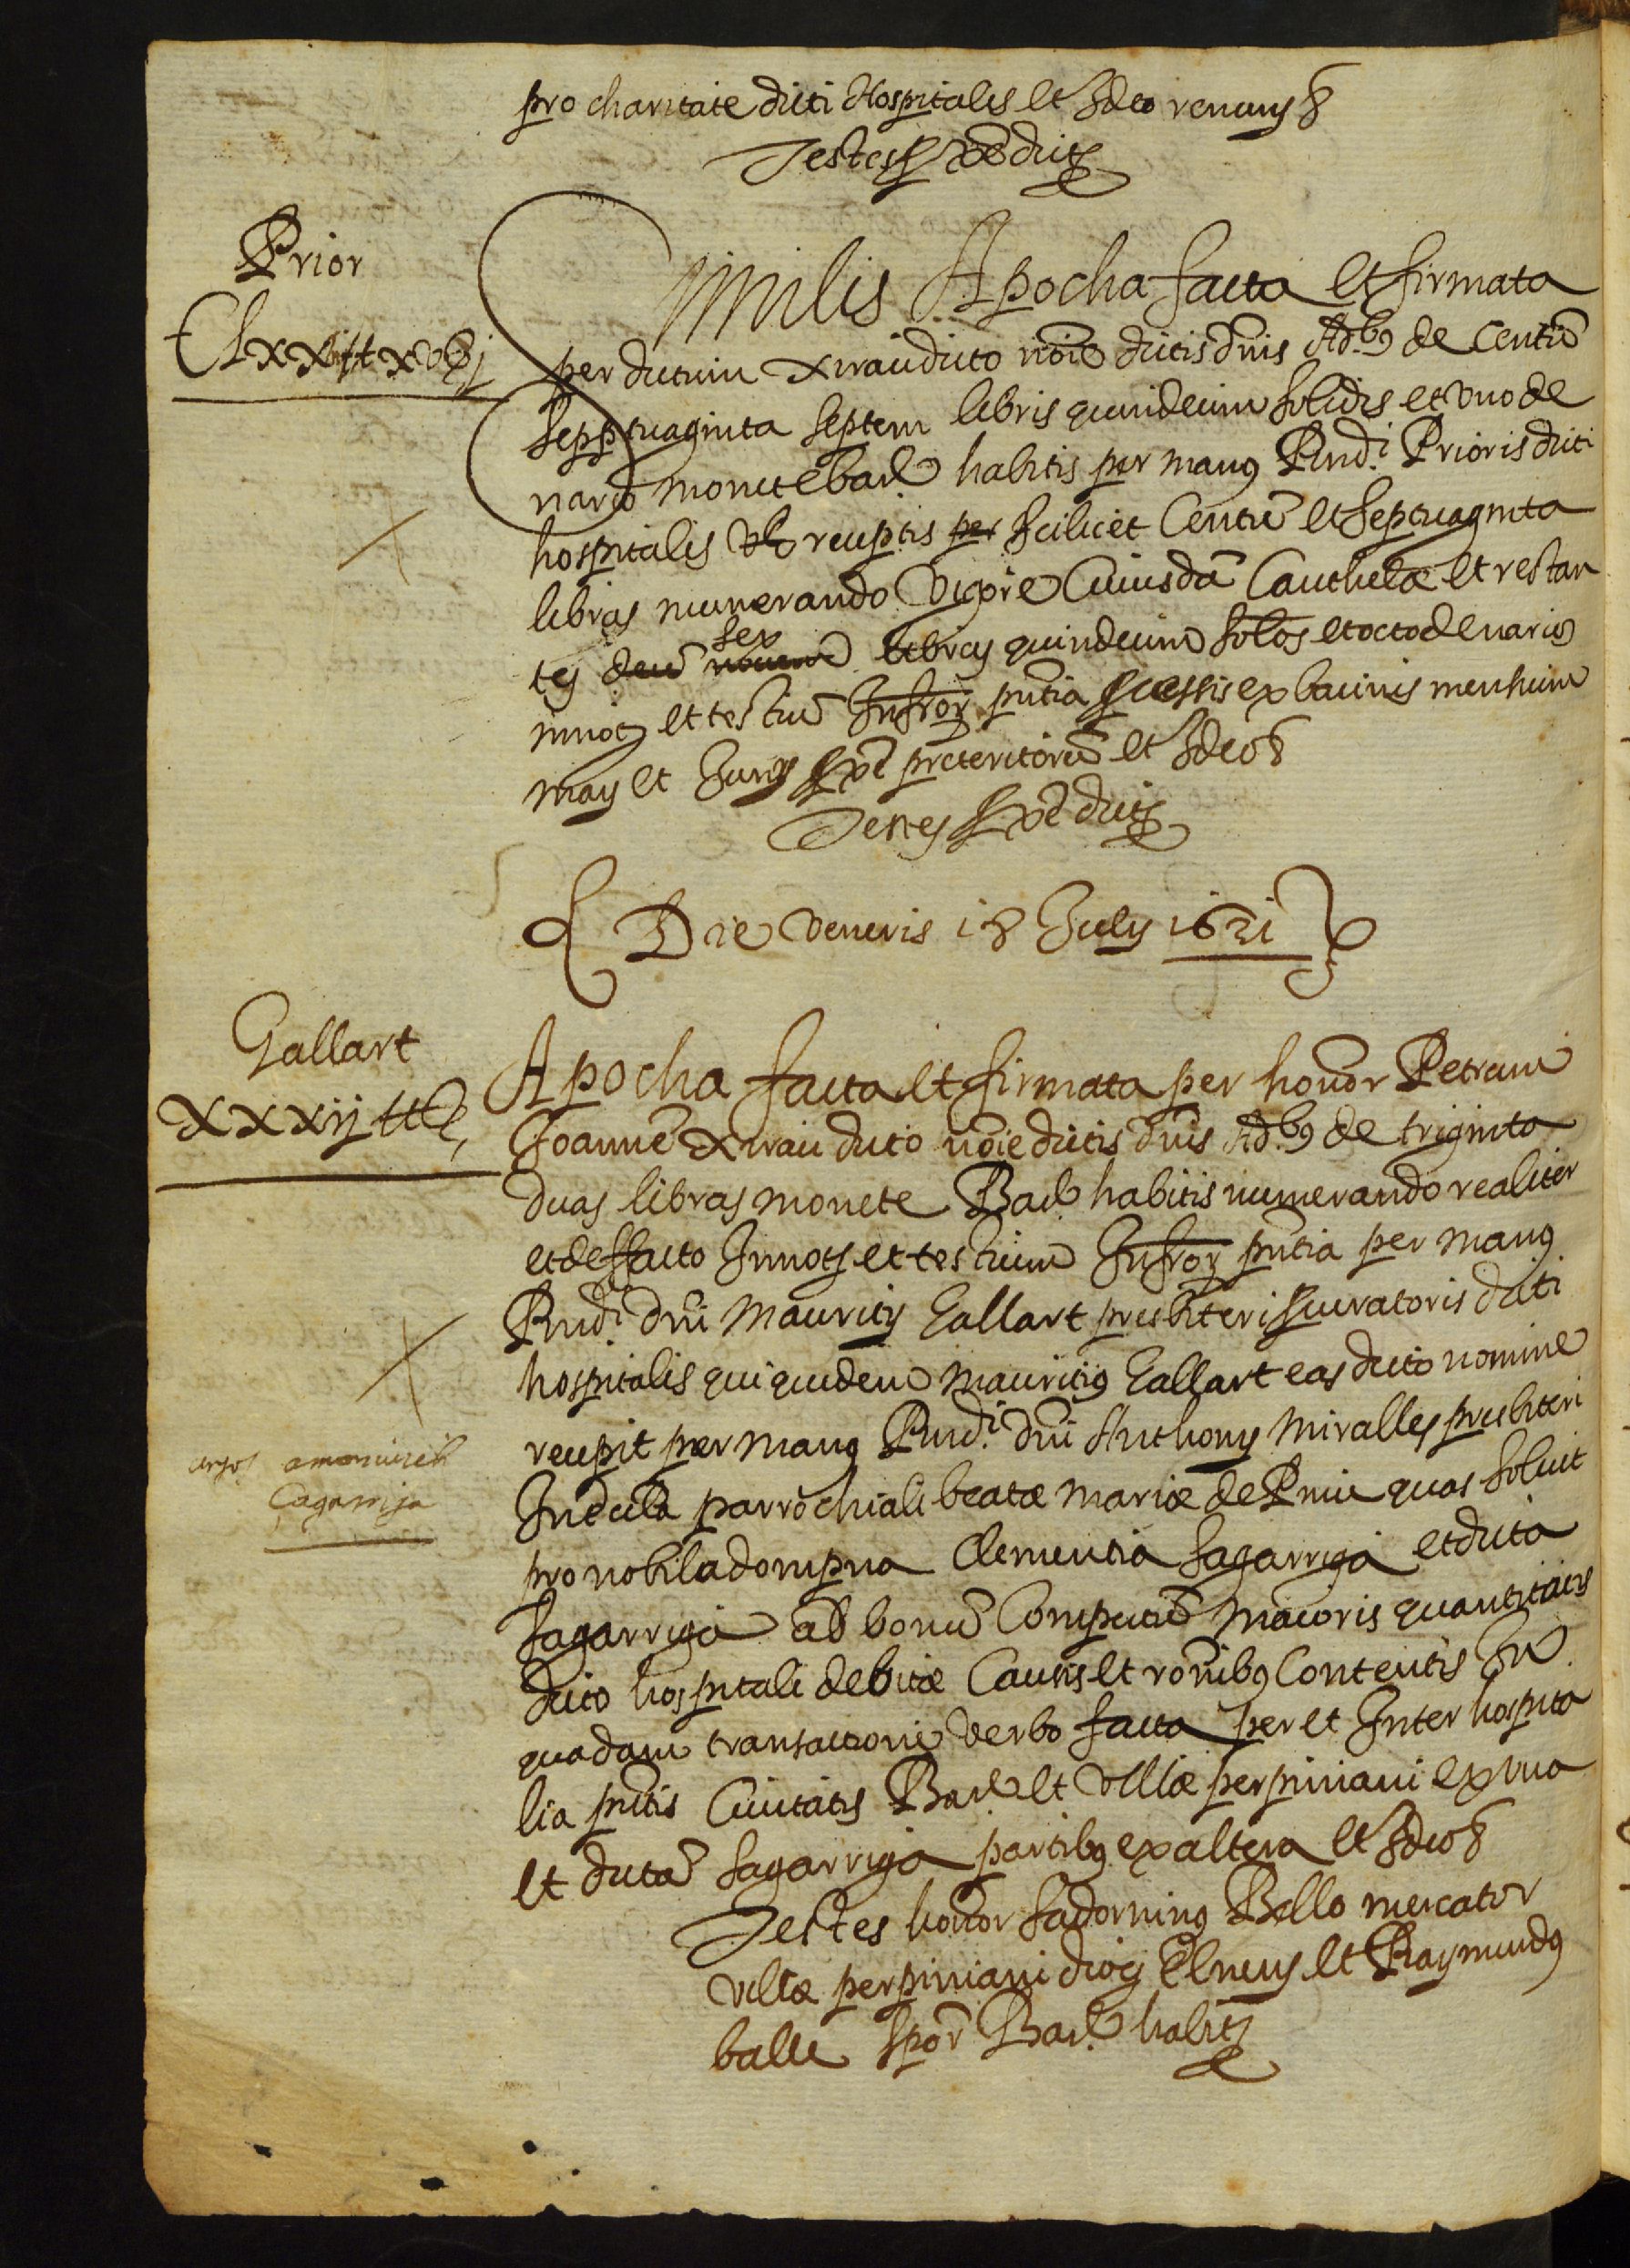 pro charitate dicti Hospitalis et Ideo renuns &
Testes sunt prox dicti
Prior
Clxxvij ℔ xv ß j
Similis Apocha facta et firmata
per dictum Xirau dicto noīe dictis dn̄is Adb9 de Centū
septuaginta septem libris quindecim solidis et vno de
nario monete bar.ᵉ habitis per manus Rnd.ⁱ Prioris dicti
hospitalis receptis per scilicet Centū et septuaginta
libras numerando vigore Cuiusdā Cauthelæ et restan
tes sex libras quindecim solos et octo denarios
in not et testiū Infror pn̄tia ex bacinis mensium
may et Juny prox preteritorū et Ideo &
Testes prox dicti
Die veneris 18 July 1621
Gallart
xxxij ℔
Apocha facta et firmata per honor Petrum
Joannē Xirau dicto noīe dictis dn̄is Adb9 de triginta
duas libras monete Bar.ᵉ habitis numerando realiter
et de facto In not et testium Infror pn̄tia per manus
Rnd.ⁱ dn̄i Mauricij Gallart presbiteri procuratoris dicti
hospitalis qui quidem Mauritius Gallart eas dicto nomine
recepit per manus Rnd.ⁱ dn̄i Anthony Miralles presbiteri
In eccla parrochiali beatæ mariæ de Pinu quas soluit
pro nobili adompna Clementia sagarriga et dicta
Sagarriga
sagarriga ad bonū Computū maioris quantitatis
dicto hospitali debitæ Causis et ronibus Contentis In
quadam transactione verbo facta per et Inter hospita
lia pn̄tis Ciuitatis Bar.ᵉ et villæ perpiniani ex vna
et dictā sagarriga partibus ex altera et Ideo &
Testes honor sadorninus Bello mercator
villæ perpiniani diocis Elnens et Raymundus
balle Bar.ᵉ habit